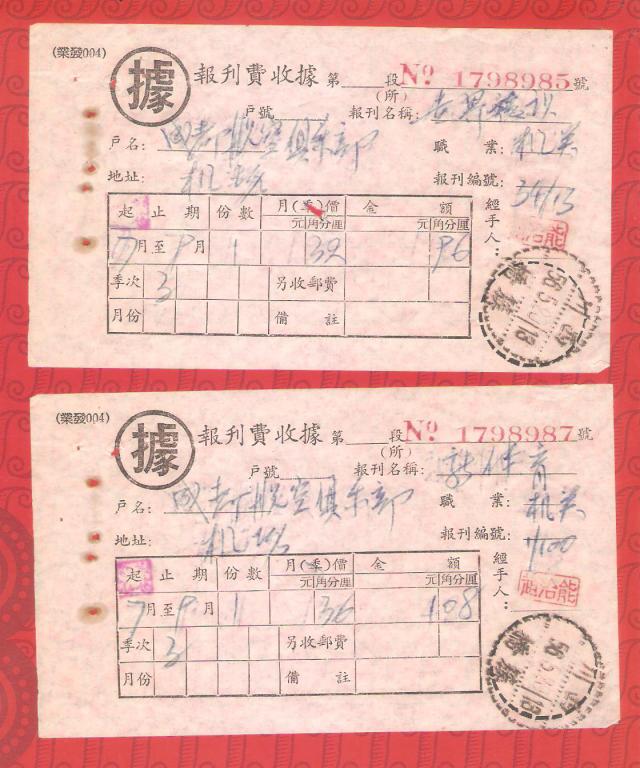 (業發004)
據 報刊費收據 第 段 Nº 1798985 號
(所)
戶號 報刊名稱:
戶名: 成都航空俱乐部 職業: 机关
地址: 报刊編號: 34/13
起止期 份數 月(季)價 金額
元角分厘 元角分厘
7月至9月 1 32 96
季次 3 另收郵費
月份 備註
經手人:
(業發004)
據 報刊費收據 第 段 Nº 1798987 號
(所)
戶號 報刊名稱: 新体育
戶名: 成都航空俱乐部 職業: 机关
地址: 報刊編號: 1/100
起止期 份數 月(季)價 金額
元角分厘 元角分厘
7月至9月 1 36 108
季次 3 另收郵費
月份 備註
經手人: